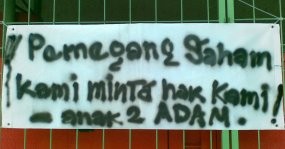 Pemegang Saham
kami minta hak kami!
- anak2 ADAM.